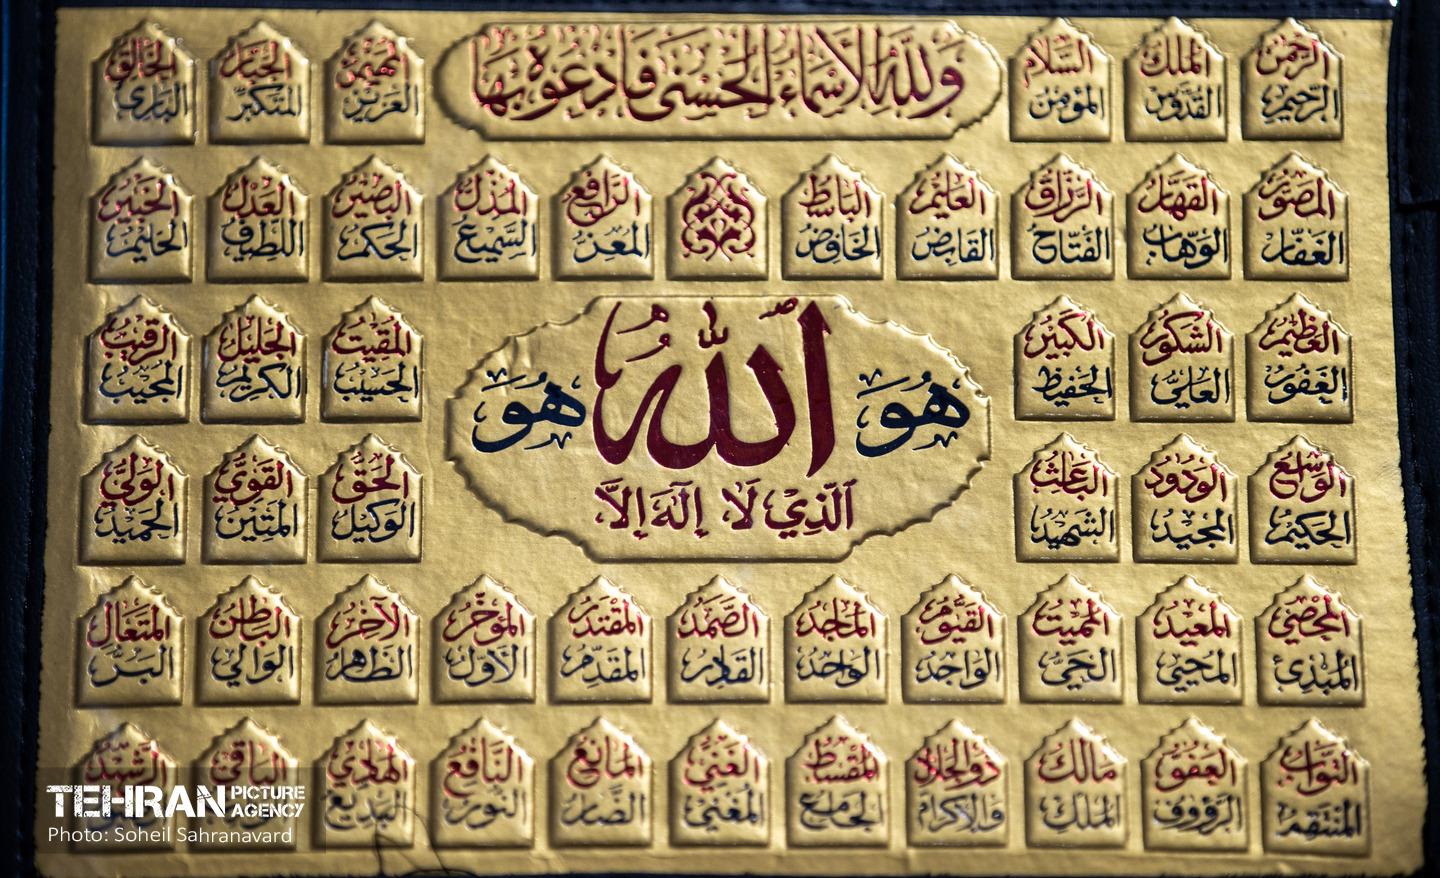 الرَّحْمٰن
الرَّحِيم
المَلِك
القُدُّوس
السَّلَام
المُؤْمِن
وَلِلَّهِ الْأَسْمَاءُ الْحُسْنَى فَادْعُوهُ بِهَا
المُهَيْمِن
العَزِيز
الجَبَّار
المُتَكَبِّر
الخَالِق
البَارِئ
المُصَوِّر
الغَفَّار
القَهَّار
الوَهَّاب
الرَّزَّاق
الفَتَّاح
العَلِيم
القَابِض
البَاسِط
الخَافِض
الرَّافِع
المُعِزّ
المُذِلّ
السَّمِيع
البَصِير
الحَكَم
العَدْل
اللَّطِيف
الخَبِير
الحَلِيم
العَظِيم
الغَفُور
الشَّكُور
العَلِيّ
الكَبِير
الحَفِيظ
هُوَ اللّٰه هُوَ
الَّذِي لَا إِلٰهَ إِلَّا
المُقِيت
الحَسِيب
الجَلِيل
الكَرِيم
الرَّقِيب
المُجِيب
الوَاسِع
الحَكِيم
الوَدُود
المَجِيد
البَاعِث
الشَّهِيد
الحَقّ
الوَكِيل
القَوِيّ
المَتِين
الوَلِيّ
الحَمِيد
المُحْصِي
المُبْدِئ
المُعِيد
المُحْيِي
المُمِيت
الحَيّ
القَيُّوم
الوَاجِد
المَاجِد
الوَاحِد
الصَّمَد
القَادِر
المُقْتَدِر
المُقَدِّم
المُؤَخِّر
الأَوَّل
الآخِر
الظَّاهِر
البَاطِن
الوَالِي
المُتَعَال
البَرّ
التَّوَّاب
المُنْتَقِم
العَفُوّ
الرَّؤُوف
مَالِك
المُلْك
ذُوالجَلَال
وَالإِكْرَام
المُقْسِط
الجَامِع
الغَنِيّ
المُغْنِي
المَانِع
الضَّارّ
النَّافِع
النُّور
الهَادِي
البَدِيع
البَاقِي
الرَّشِيد
TEHRAN PICTURE AGENCY
Photo: Soheil Sahranavard